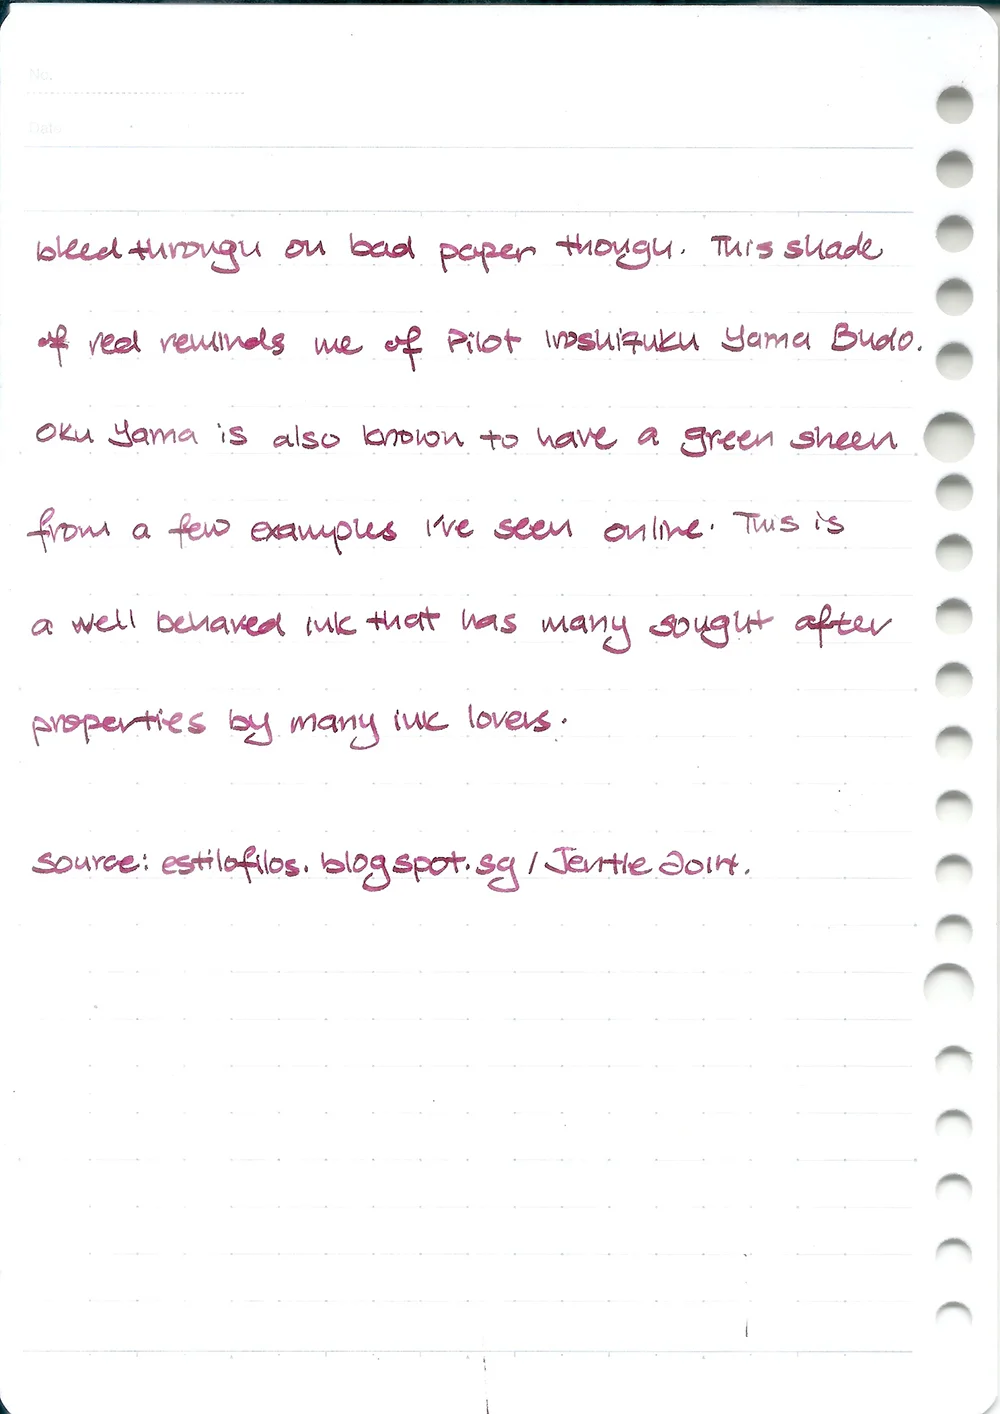 No.
Date
bleed through on bad paper though. This shade
of red reminds me of Pilot Iroshizuku Yama Budo.
Oku Yama is also known to have a green sheen
from a few examples I've seen online. This is
a well behaved ink that has many sought after
properties by many ink lovers.
source: estilofilos.blogspot.sg / Jentle Doirt.